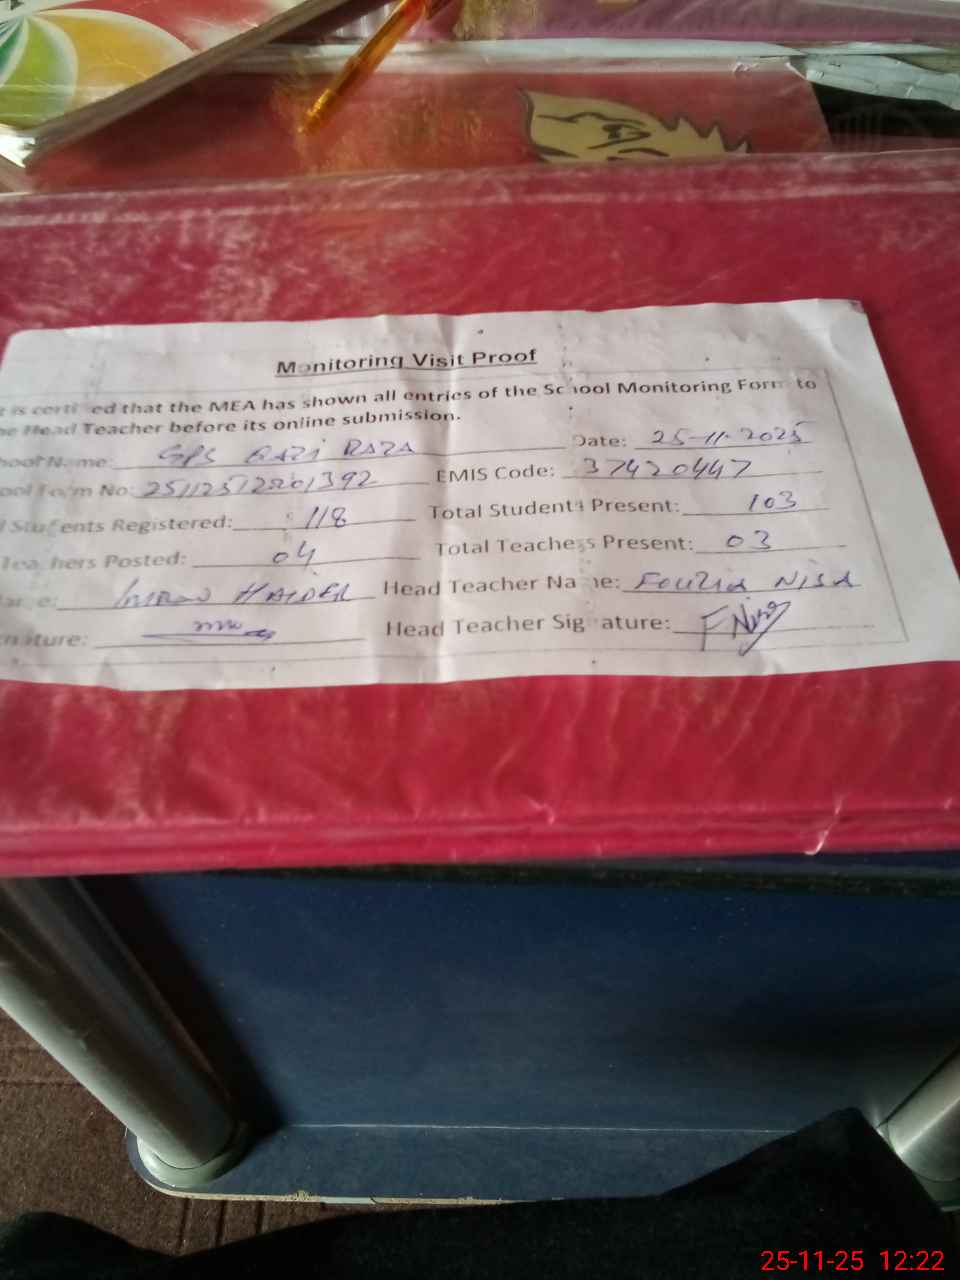 Monitoring Visit Proof
is certified that the MEA has shown all entries of the School Monitoring Form to
Head Teacher before its online submission.
School Name: GPS QAZI RAZA Date: 25-11-2025
School Form No: EMIS Code: 37420447
Students Registered: 118 Total Students Present: 103
Teachers Posted: 04 Total Teachers Present: 03
Name: IMRAN HAIDER Head Teacher Name: Fouzia NISA
Signature: Head Teacher Signature: FNisa
25-11-25 12:22